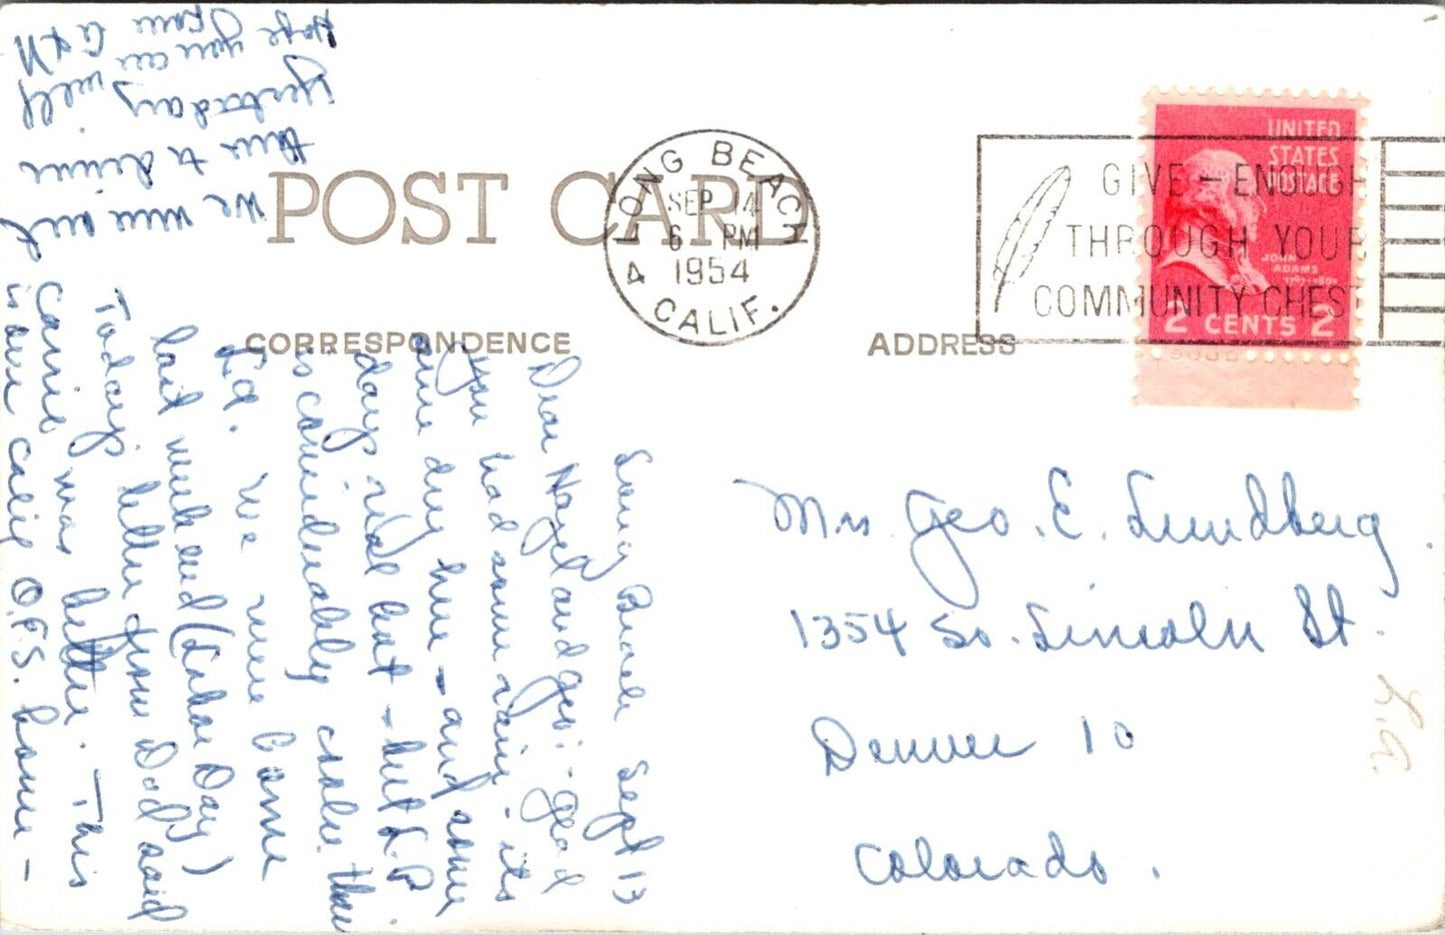 POST CARD
CORRESPONDENCE
ADDRESS
LONG BEACH
SEP 14
6 PM
1954
4 CALIF.
GIVE - ENOUGH
THROUGH YOUR
COMMUNITY CHEST
UNITED
STATES
POSTAGE
JOHN
ADAMS
1797-1801
2 CENTS 2
Mrs. Geo. E. Lundberg
1354 So. Lincoln St.
Denver 10
Colorado.
L.A.
Long Beach Sept 13
Dear Hazel and Geo: - glad
you had some rain. its
some dry here - and some
days real hot - but L.B.
is considerably cooler than
L.A. We were home
last week end (Labor Day)
Today letter from Dad said
Carrie was better. This
is our Calif O.E.S. home -
we were out
there to dinner
yesterday
hope you are well
from G & N